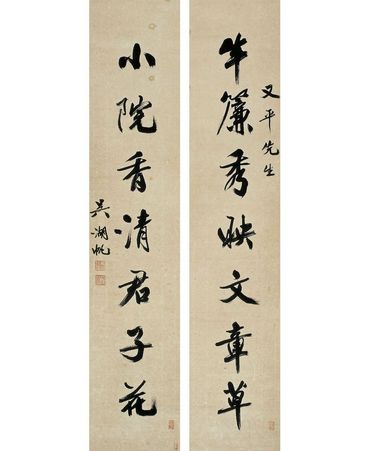 半簾秀映文章草
又平先生
小院香清君子花
吳湖帆